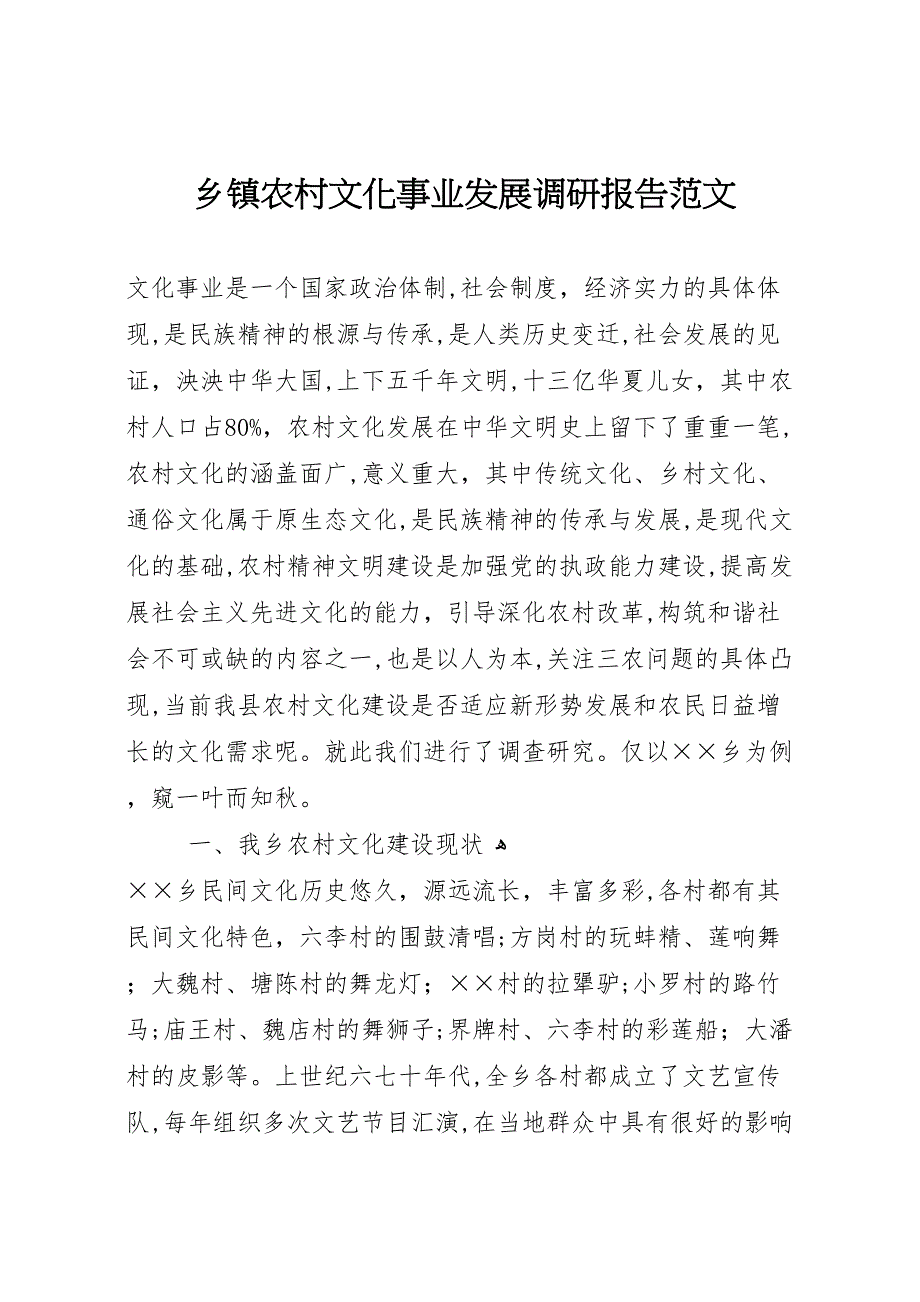 乡镇农村文化事业发展调研报告范文
文化事业是一个国家政治体制,社会制度，经济实力的具体体
现,是民族精神的根源与传承,是人类历史变迁,社会发展的见
证，泱泱中华大国,上下五千年文明,十三亿华夏儿女，其中农
村人口占80%，农村文化发展在中华文明史上留下了重重一笔,
农村文化的涵盖面广,意义重大，其中传统文化、乡村文化、
通俗文化属于原生态文化,是民族精神的传承与发展,是现代文
化的基础,农村精神文明建设是加强党的执政能力建设,提高发
展社会主义先进文化的能力，引导深化农村改革,构筑和谐社
会不可或缺的内容之一,也是以人为本,关注三农问题的具体凸
现,当前我县农村文化建设是否适应新形势发展和农民日益增
长的文化需求呢。就此我们进行了调查研究。仅以××乡为例
，窥一叶而知秋。
一、我乡农村文化建设现状 ﻫ
××乡民间文化历史悠久，源远流长，丰富多彩,各村都有其
民间文化特色，六李村的围鼓清唱;方岗村的玩蚌精、莲响舞
；大魏村、塘陈村的舞龙灯；××村的拉犟驴;小罗村的路竹
马;庙王村、魏店村的舞狮子;界牌村、六李村的彩莲船；大潘
村的皮影等。上世纪六七十年代,全乡各村都成立了文艺宣传
队,每年组织多次文艺节目汇演,在当地群众中具有很好的影响